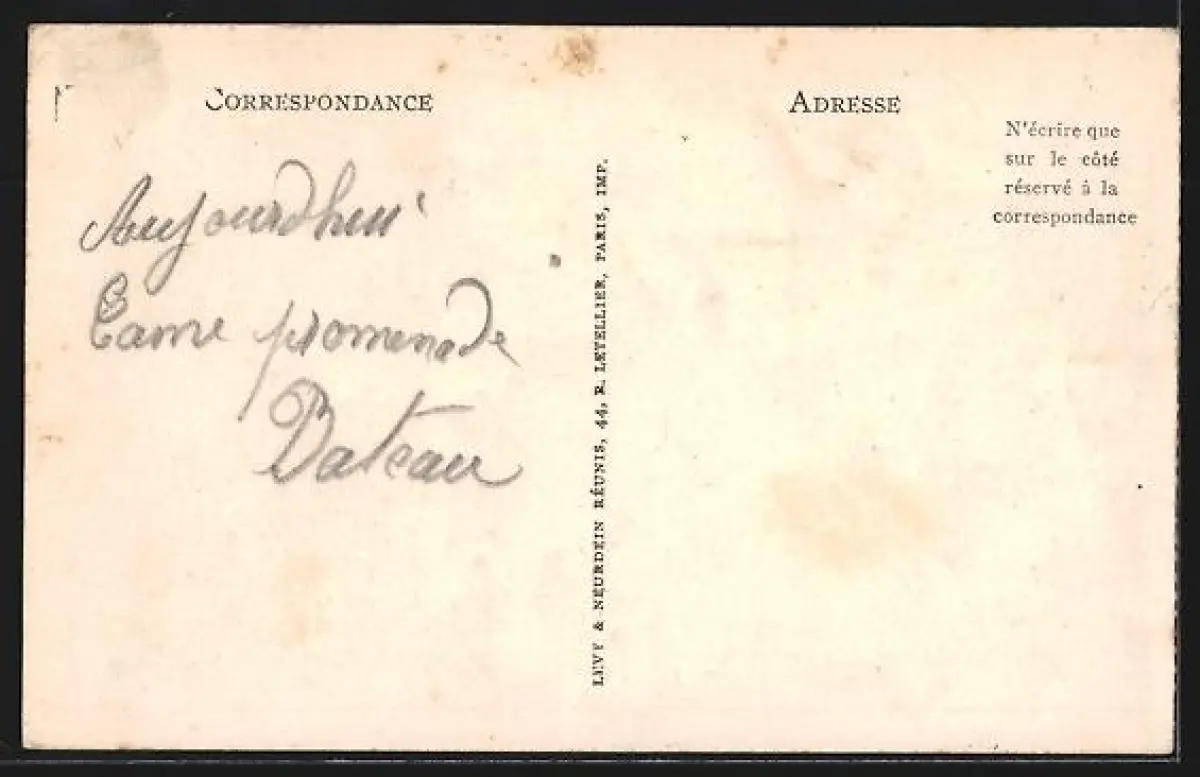 CORRESPONDANCE
Aujourdhui
promenade
Bateau
LEVY & NEURDEIN RÉUNIS, 44, R. LETELLIER, PARIS, IMP.
ADRESSE
N'écrire que
sur le côté
réservé à la
correspondance